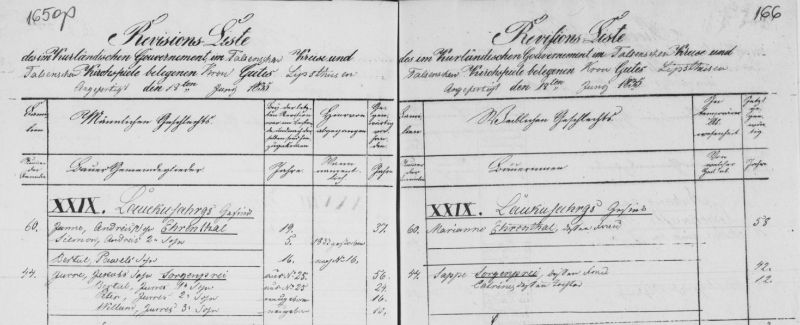 1650p
Revisions Liste
des im Kurländischen Gouvernement, im Talsenschen Kreise und
Talsenschen Kirchspiele belegenen Kron Gutes Lipsthusen
Angefertigt den 13ten Juny 1835
Männlichen Geschlechts.
Bauer Gemeindeglieder
Jahre.
Jahre
XXIX. Laukusahrgs Gesind
60. Janne, Andreis Sohn Ehrenthal 19. 37.
Siemon, Andreis 2r Sohn 5. 1833 verstorben
Bertul, Pawels Sohn 16. nach No 16.
44. Jurre, Jekabs Sohn Sorgenfrei aus No 25. 56.
Bertul, Jurres 1r Sohn aus No 25 24.
Peter, Jurres 2r Sohn 16.
Willum, Jurres 3r Sohn
166
Revisions Liste
des im Kurländischen Gouvernement im Talsenschen Kreise und
Talsenschen Kirchspiele belegenen Kron Gutes Lipsthusen
Angefertigt den 13ten Juny 1835
Weiblichen Geschlechts.
Bäuerinnen
Jahre
XXIX. Laukusahrgs Gesind
60. Marianne Ehrenthal, dessen Frau 58
44. Sappe Sorgenfrei, dessen Frau 42.
Cathrine, dessen Tochter 12.